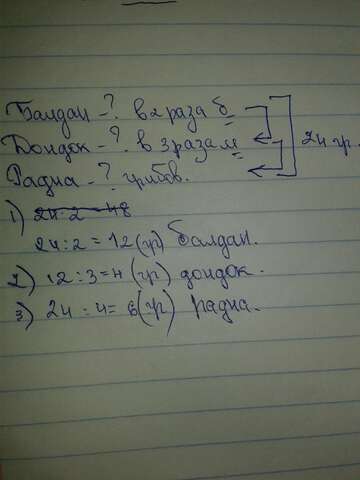 Балдан - ? в 2 раза б
Дондок - ? в 3 раза м 24 гр.
Радна - ? грибов.
1) 24 · 2 = 48
24 : 2 = 12 (гр) Балдан.
2) 12 : 3 = 4 (гр) дондок.
3) 24 : 4 = 6 (гр) радна.